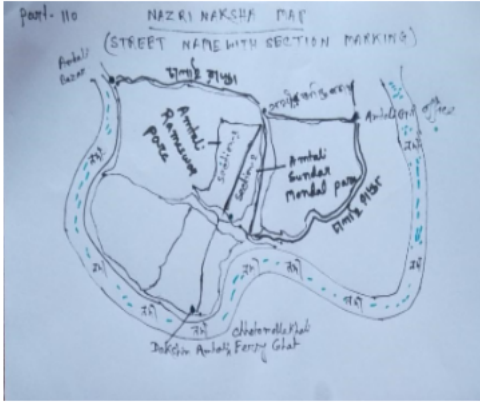 Part-110
NAZRI NAKSHA MAP
(STREET NAME WITH SECTION MARKING)
Amtali
Bazar
ঢালাই রাস্তা
Amtali
Rameswar
Para
Section-1
Section-2
Amtali
Sundar
Mondal para
ঢালাই রাস্তা
নদী
নদী
নদী
নদী
নদী
নদী
নদী
নদী
Chhotomollakhali
Dakshin Amtali Ferry Ghat